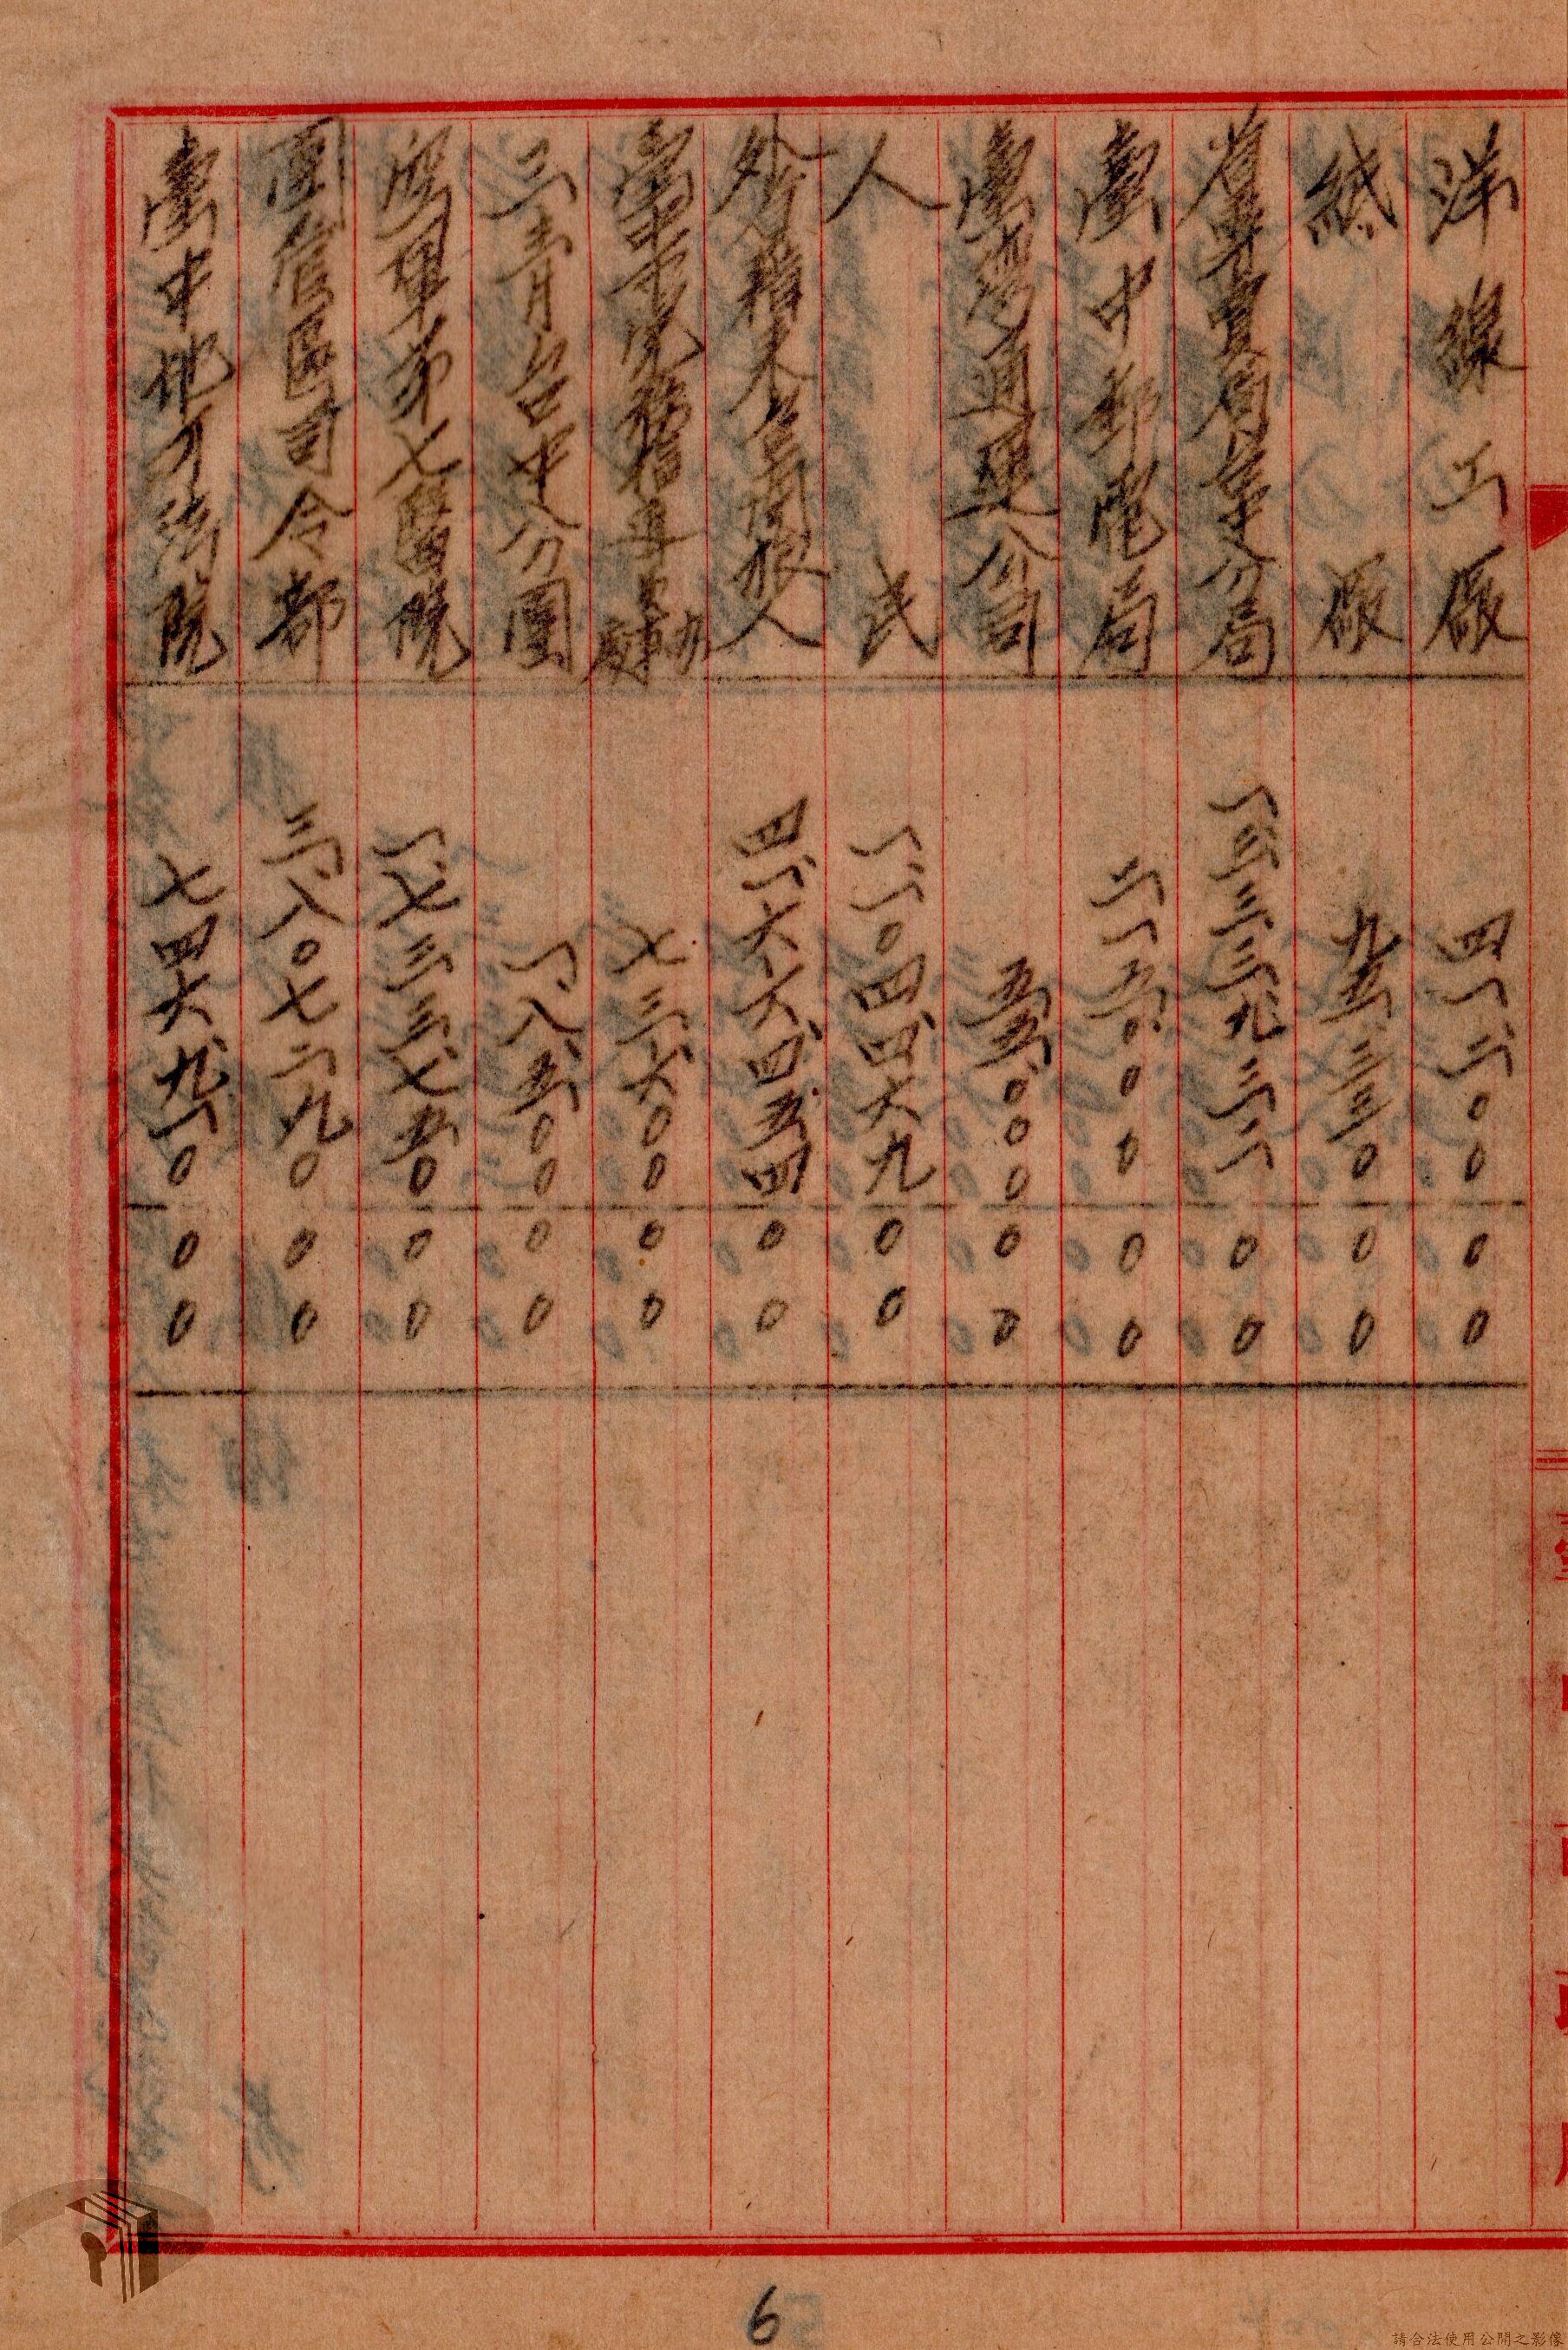 洋線工廠 四一二〇〇〇〇
紙廠 九五三三〇〇〇
省專賣局臺中分局 一三三三九三二〇〇
臺中郵電局 二一五〇〇〇〇〇
臺灣通運公司 五五〇〇〇〇〇
人民 一一〇四四六九〇〇
外省籍本臺商旅人 四一六六四五四〇〇
臺中市黨務指導
三青台中分團 一八五〇〇〇〇
海軍第七醫院 一七三三七五〇〇〇
團管區司令部 三八〇七二九〇〇〇
臺中地方法院 七四六九一〇〇〇
七三六〇〇〇〇
6
請合法使用公開之影像